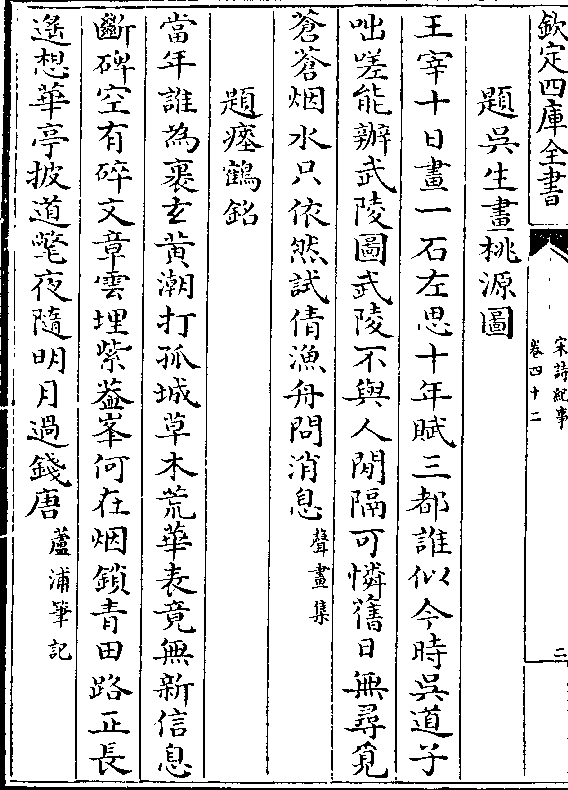 欽定四庫全書
宋詩紀事
卷四十二
三
題吳生畫桃源圖
王宰十日畫一石左思十年賦三都誰似今時吳道子
咄嗟能辦武陵圖武陵不與人閒隔可憐舊日無尋覓
蒼蒼烟水只依然試倩漁舟問消息聲畫集
題瘞鶴銘
當年誰為裹玄黄潮打孤城草木荒華表竟無新信息
斷碑空有碎文章雲埋紫葢峯何在烟鎖青田路正長
遥想華亭披道氅夜隨明月過錢唐蘆浦筆記